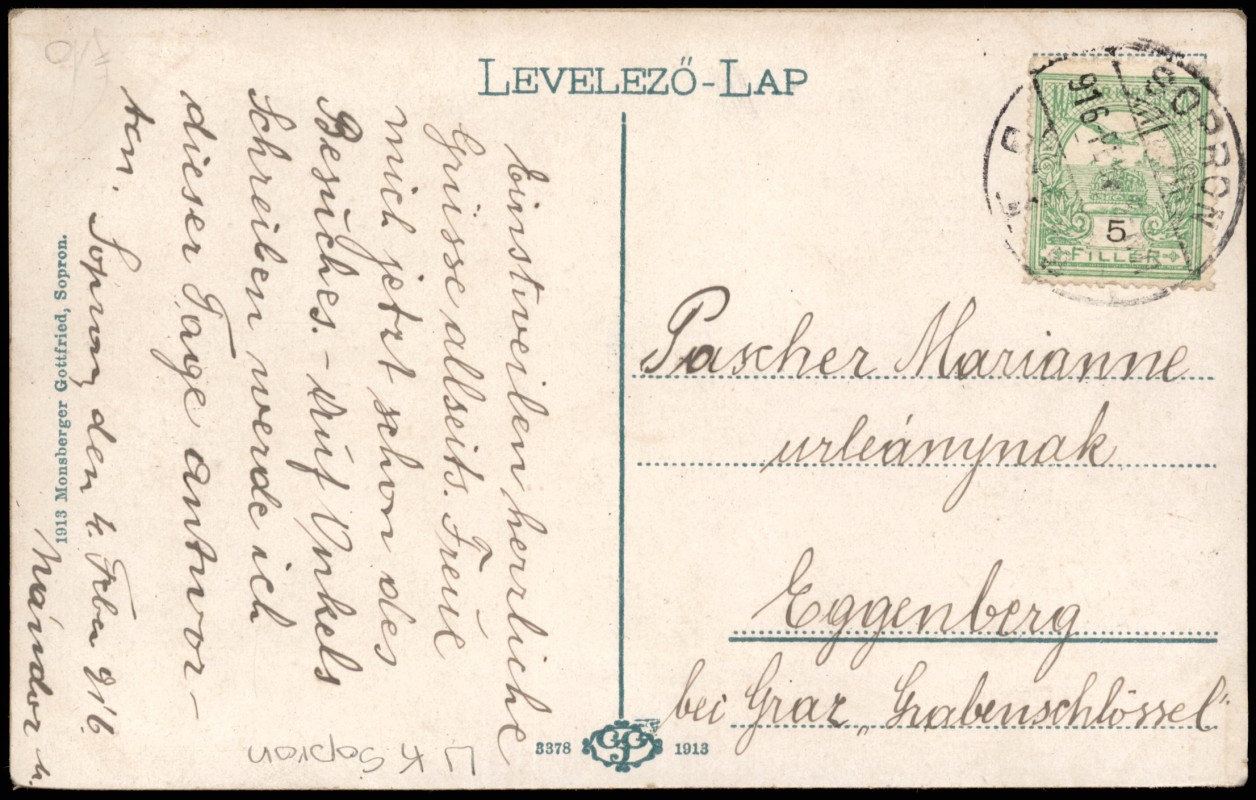 LEVELEZŐ-LAP
Einstweilen herzliche
Grüsse allseits. Freue
mich jetzt schon des
Besuches. - Auf Onkels
Schreiben werde ich
dieser Tage antwor-
ten.
Sopron, den 4. Feber 916.
Nándor
1913 Monsberger Gottfried, Sopron.
SOPRON
916
5
FILLER
Pascher Marianne
urleánynak
Eggenberg
bei Graz „Grabenschlössel"
3378
1913
Sopron